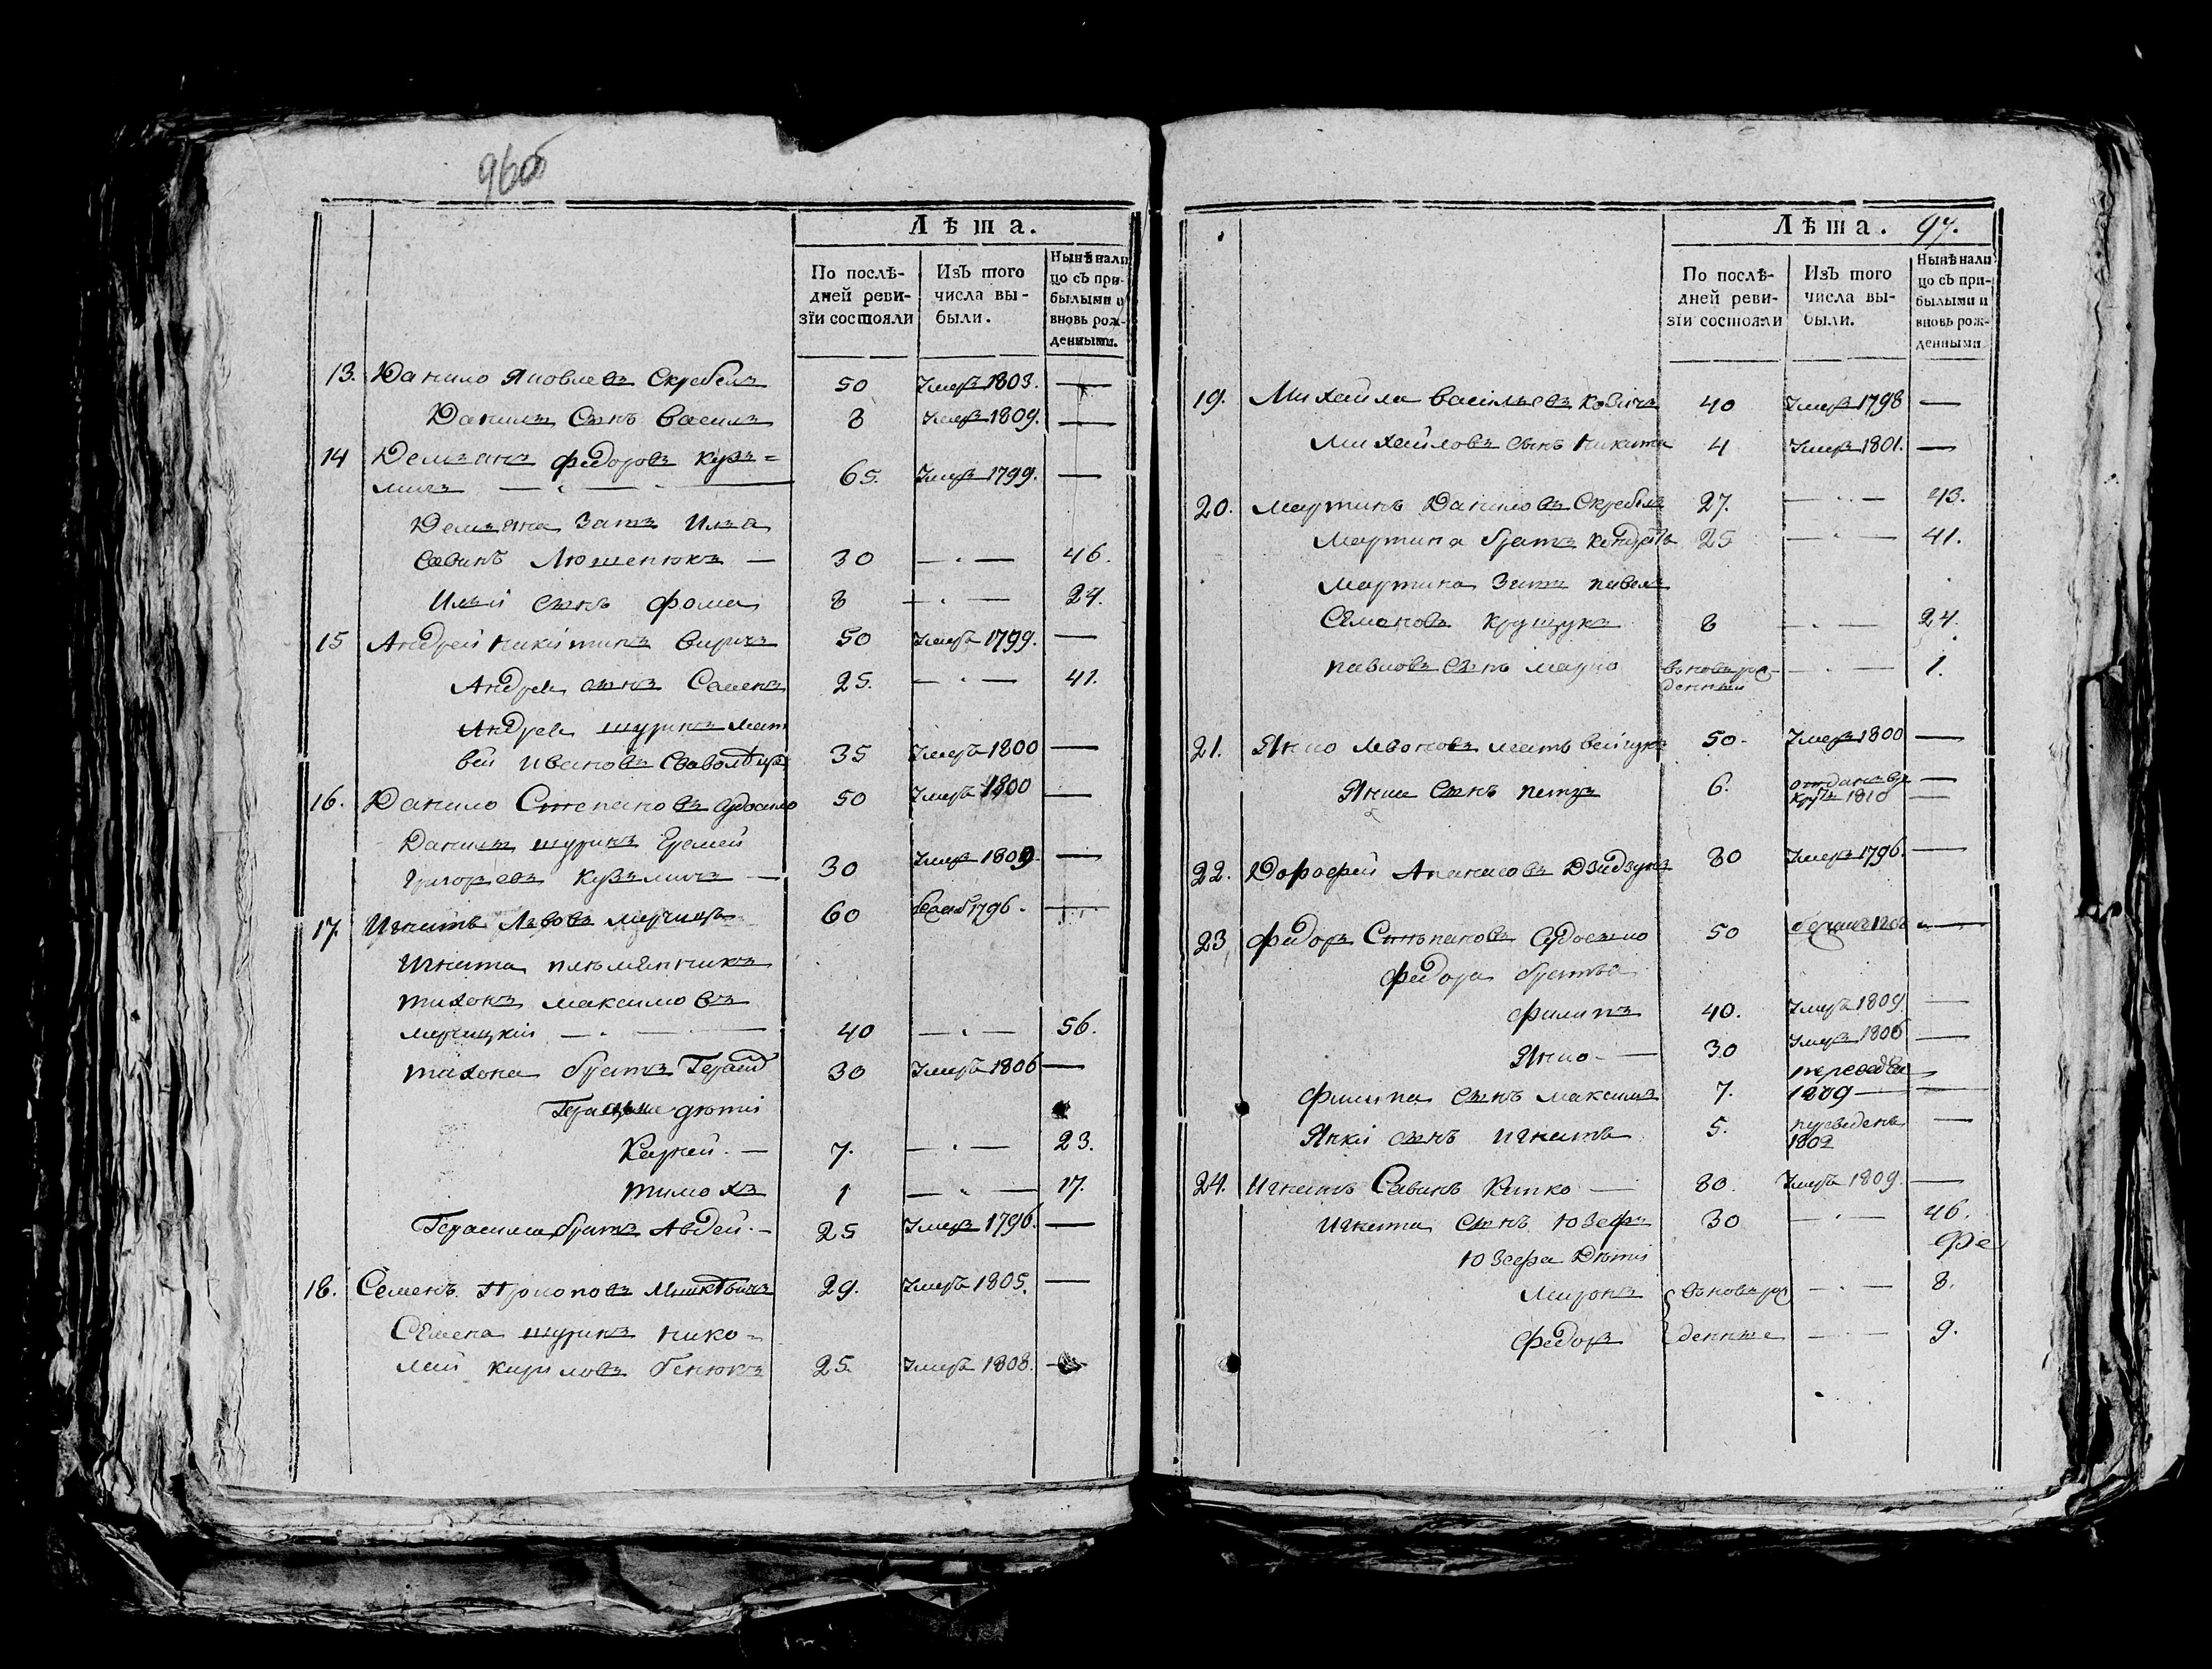 96об
Лѣта.
По послѣ-
дней реви-
зїи состояли
Изъ того
числа вы-
были.
Нынѣ нали
цо съ при-
былыми и
вновь рож-
денными.
13. Данило Яковлевъ Скребель 50 Умеръ 1803. —
Данилы Сынъ Василь 8 Умеръ 1809. —
14 Демьянъ Федоровъ Кузь=
мичъ — 65. Умеръ 1799. —
Демьяна Зять Илья
Савинъ Люшенюкъ — 30 — 46.
Ильи Сынъ Фома 8 — 24.
15 Андрей Никитинъ 50 Умеръ 1799. —
Андрея сынъ Семенъ 25. — 41.
Андрея шуринъ Мат
вей Ивановъ 35 Умеръ 1800 —
16. Данило Степановъ 50 Умеръ 1800 —
Данилы шуринъ Еремей
Григорьевъ Кузьмичъ — 30 Умеръ 1809 —
17. Игнатъ Львовъ 60 1796. —
Игната племянникъ
Тихонъ Максимовъ
— 40 — 56.
Тихона братъ 30 Умеръ 1806 —
дѣти
Карней. — 7. — 23.
Тимохъ 1 — 17.
Герасима братъ Авдей. — 25 Умеръ 1796. —
18. Семенъ Прокоповъ 29. Умеръ 1805. —
Семена шуринъ Нико=
лай Кириловъ 25. Умеръ 1808. —
Лѣта. 97.
По послѣ-
дней реви-
зїи состояли
Изъ того
числа вы-
были.
Нынѣ нали
цо съ при-
былыми и
вновь рож-
денными
19. Михайла Васильевъ Козичъ 40 Умеръ 1798 —
Михайловъ сынъ Никита 4 Умеръ 1801. —
20. Мартинъ Даниловъ Скребель 27. — 43.
Мартина братъ Кондратъ 25 — 41.
Мартина Зять Павелъ
Семеновъ Крущукъ 8 — 24.
Павловъ Сынъ Марко вновь рож
денный — 1.
21. Янко Леоновъ Матвейчукъ 50. Умеръ 1800 —
Янки Сынъ Петръ 6. отданъ въ —
1810 —
22. Дорофей Апанасовъ Дзидзукъ 80 Умеръ 1796. —
23 Федоръ Степановъ 50 —
Федора братья
Филипъ 40. Умеръ 1809. —
Янко — 30 Умеръ 1806 —
Филипа Сынъ Максимъ 7. переведен
1809 —
Янки сынъ Игнатъ 5. переведенъ
1802 —
24. Игнатъ Савинъ — 80. Умеръ 1809. —
Игната Сынъ Юзефъ 30 — 46.
Юзефа Дѣти Фе
Миронъ вновь рож — 8.
Федоръ денные — 9.